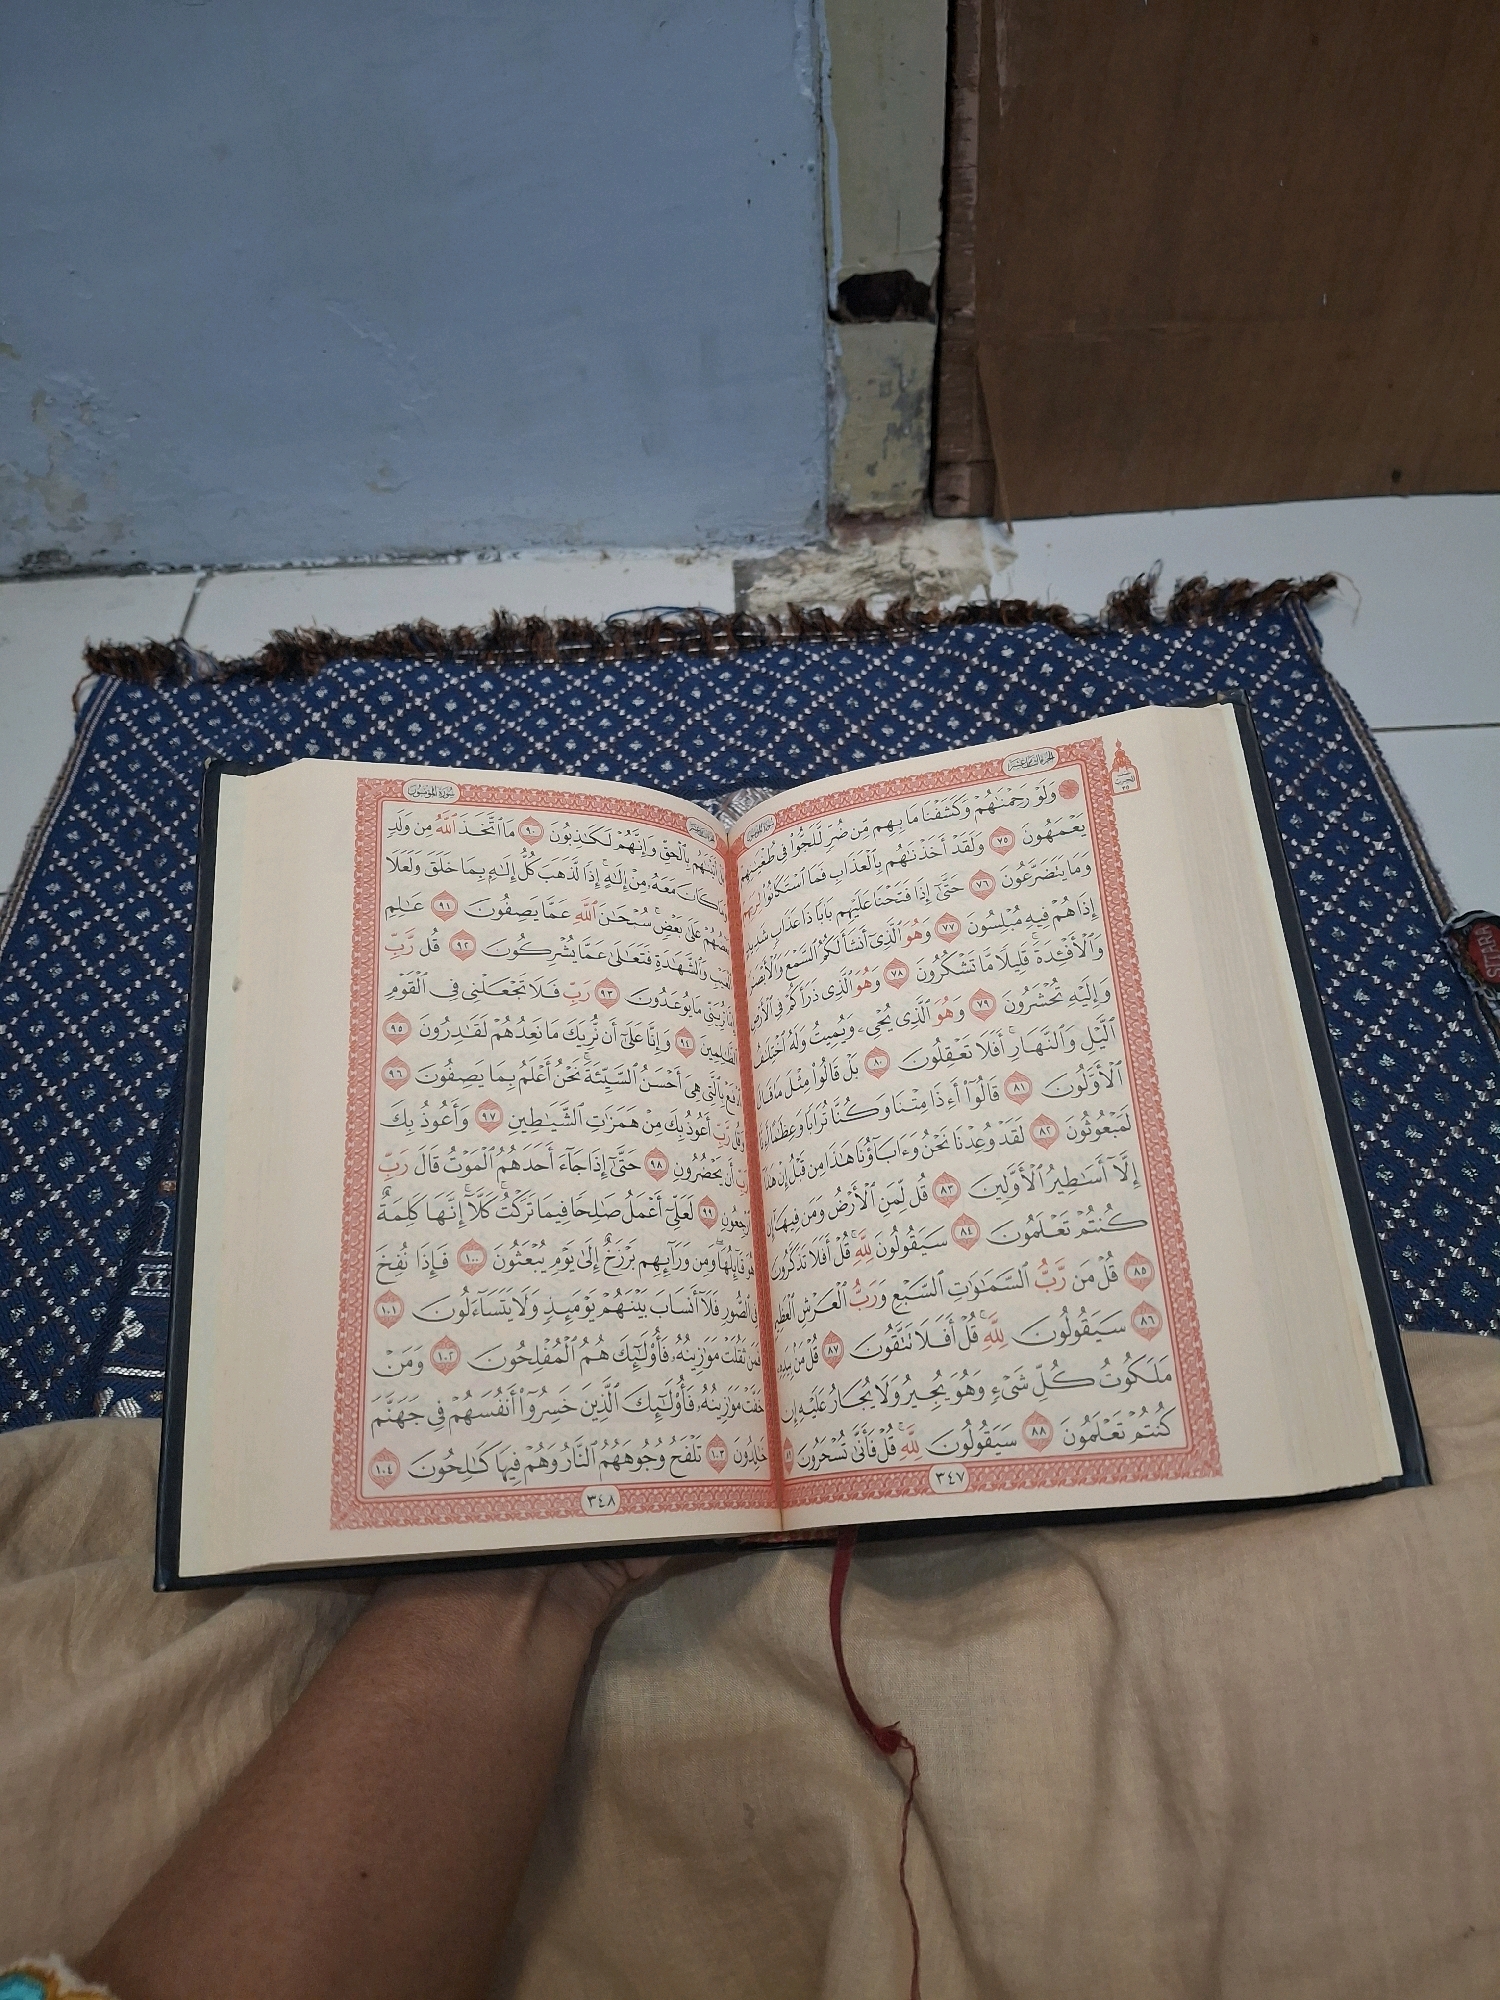 سورة المؤمنون
وَلَوْ رَحِمْنَٰهُمْ وَكَشَفْنَا مَا بِهِم مِّن ضُرٍّ لَّلَجُّوا۟ فِى طُغْيَٰنِهِمْ
يَعْمَهُونَ ٧٥ وَلَقَدْ أَخَذْنَٰهُم بِٱلْعَذَابِ فَمَا ٱسْتَكَانُوا۟ لِرَبِّهِمْ
وَمَا يَتَضَرَّعُونَ ٧٦ حَتَّىٰٓ إِذَا فَتَحْنَا عَلَيْهِم بَابًا ذَا عَذَابٍ شَدِيدٍ
إِذَا هُمْ فِيهِ مُبْلِسُونَ ٧٧ وَهُوَ ٱلَّذِىٓ أَنشَأَ لَكُمُ ٱلسَّمْعَ وَٱلْأَبْصَٰرَ
وَٱلْأَفْـِٔدَةَ ۚ قَلِيلًا مَّا تَشْكُرُونَ ٧٨ وَهُوَ ٱلَّذِى ذَرَأَكُمْ فِى ٱلْأَرْضِ
وَإِلَيْهِ تُحْشَرُونَ ٧٩ وَهُوَ ٱلَّذِى يُحْىِۦ وَيُمِيتُ وَلَهُ ٱخْتِلَٰفُ
ٱلَّيْلِ وَٱلنَّهَارِ ۚ أَفَلَا تَعْقِلُونَ ٨٠ بَلْ قَالُوا۟ مِثْلَ مَا قَالَ
ٱلْأَوَّلُونَ ٨١ قَالُوٓا۟ أَءِذَا مِتْنَا وَكُنَّا تُرَابًا وَعِظَٰمًا أَءِنَّا
لَمَبْعُوثُونَ ٨٢ لَقَدْ وُعِدْنَا نَحْنُ وَءَابَآؤُنَا هَٰذَا مِن قَبْلُ إِنْ هَٰذَآ
إِلَّآ أَسَٰطِيرُ ٱلْأَوَّلِينَ ٨٣ قُل لِّمَنِ ٱلْأَرْضُ وَمَن فِيهَآ إِن
كُنتُمْ تَعْلَمُونَ ٨٤ سَيَقُولُونَ لِلَّهِ ۚ قُلْ أَفَلَا تَذَكَّرُونَ
٨٥ قُلْ مَن رَّبُّ ٱلسَّمَٰوَٰتِ ٱلسَّبْعِ وَرَبُّ ٱلْعَرْشِ ٱلْعَظِيمِ
٨٦ سَيَقُولُونَ لِلَّهِ ۚ قُلْ أَفَلَا تَتَّقُونَ ٨٧ قُلْ مَنۢ بِيَدِهِۦ
مَلَكُوتُ كُلِّ شَىْءٍ وَهُوَ يُجِيرُ وَلَا يُجَارُ عَلَيْهِ إِن
كُنتُمْ تَعْلَمُونَ ٨٨ سَيَقُولُونَ لِلَّهِ ۚ قُلْ فَأَنَّىٰ تُسْحَرُونَ ٨٩
٣٤٧
سورة المؤمنون
بَلْ أَتَيْنَٰهُم بِٱلْحَقِّ وَإِنَّهُمْ لَكَٰذِبُونَ ٩٠ مَا ٱتَّخَذَ ٱللَّهُ مِن وَلَدٍ
وَمَا كَانَ مَعَهُۥ مِنْ إِلَٰهٍ ۚ إِذًا لَّذَهَبَ كُلُّ إِلَٰهٍۭ بِمَا خَلَقَ وَلَعَلَا
بَعْضُهُمْ عَلَىٰ بَعْضٍ ۚ سُبْحَٰنَ ٱللَّهِ عَمَّا يَصِفُونَ ٩١ عَٰلِمِ
ٱلْغَيْبِ وَٱلشَّهَٰدَةِ فَتَعَٰلَىٰ عَمَّا يُشْرِكُونَ ٩٢ قُل رَّبِّ
إِمَّا تُرِيَنِّى مَا يُوعَدُونَ ٩٣ رَبِّ فَلَا تَجْعَلْنِى فِى ٱلْقَوْمِ
ٱلظَّٰلِمِينَ ٩٤ وَإِنَّا عَلَىٰٓ أَن نُّرِيَكَ مَا نَعِدُهُمْ لَقَٰدِرُونَ ٩٥
ٱدْفَعْ بِٱلَّتِى هِىَ أَحْسَنُ ٱلسَّيِّئَةَ ۚ نَحْنُ أَعْلَمُ بِمَا يَصِفُونَ ٩٦
وَقُل رَّبِّ أَعُوذُ بِكَ مِنْ هَمَزَٰتِ ٱلشَّيَٰطِينِ ٩٧ وَأَعُوذُ بِكَ
رَبِّ أَن يَحْضُرُونِ ٩٨ حَتَّىٰٓ إِذَا جَآءَ أَحَدَهُمُ ٱلْمَوْتُ قَالَ رَبِّ
ٱرْجِعُونِ ٩٩ لَعَلِّىٓ أَعْمَلُ صَٰلِحًا فِيمَا تَرَكْتُ ۚ كَلَّآ ۚ إِنَّهَا كَلِمَةٌ
هُوَ قَآئِلُهَا ۖ وَمِن وَرَآئِهِم بَرْزَخٌ إِلَىٰ يَوْمِ يُبْعَثُونَ ١٠٠ فَإِذَا نُفِخَ
فِى ٱلصُّورِ فَلَآ أَنسَابَ بَيْنَهُمْ يَوْمَئِذٍ وَلَا يَتَسَآءَلُونَ ١٠١
فَمَن ثَقُلَتْ مَوَٰزِينُهُۥ فَأُو۟لَٰٓئِكَ هُمُ ٱلْمُفْلِحُونَ ١٠٢ وَمَنْ
خَفَّتْ مَوَٰزِينُهُۥ فَأُو۟لَٰٓئِكَ ٱلَّذِينَ خَسِرُوٓا۟ أَنفُسَهُمْ فِى جَهَنَّمَ
خَٰلِدُونَ ١٠٣ تَلْفَحُ وُجُوهَهُمُ ٱلنَّارُ وَهُمْ فِيهَا كَٰلِحُونَ ١٠٤
٣٤٨